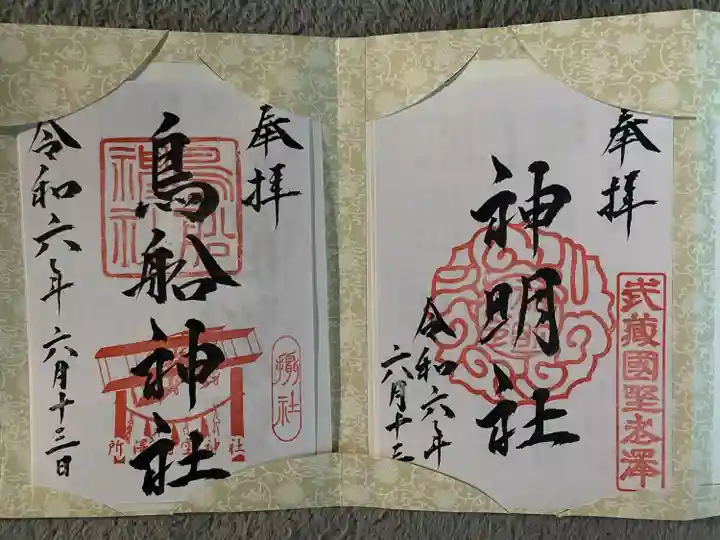 奉拝
武蔵國野老澤
神明社
令和六年
六月十三
奉拝
鳥船神社
鳥船神社
摂社
令和六年 六月十三日